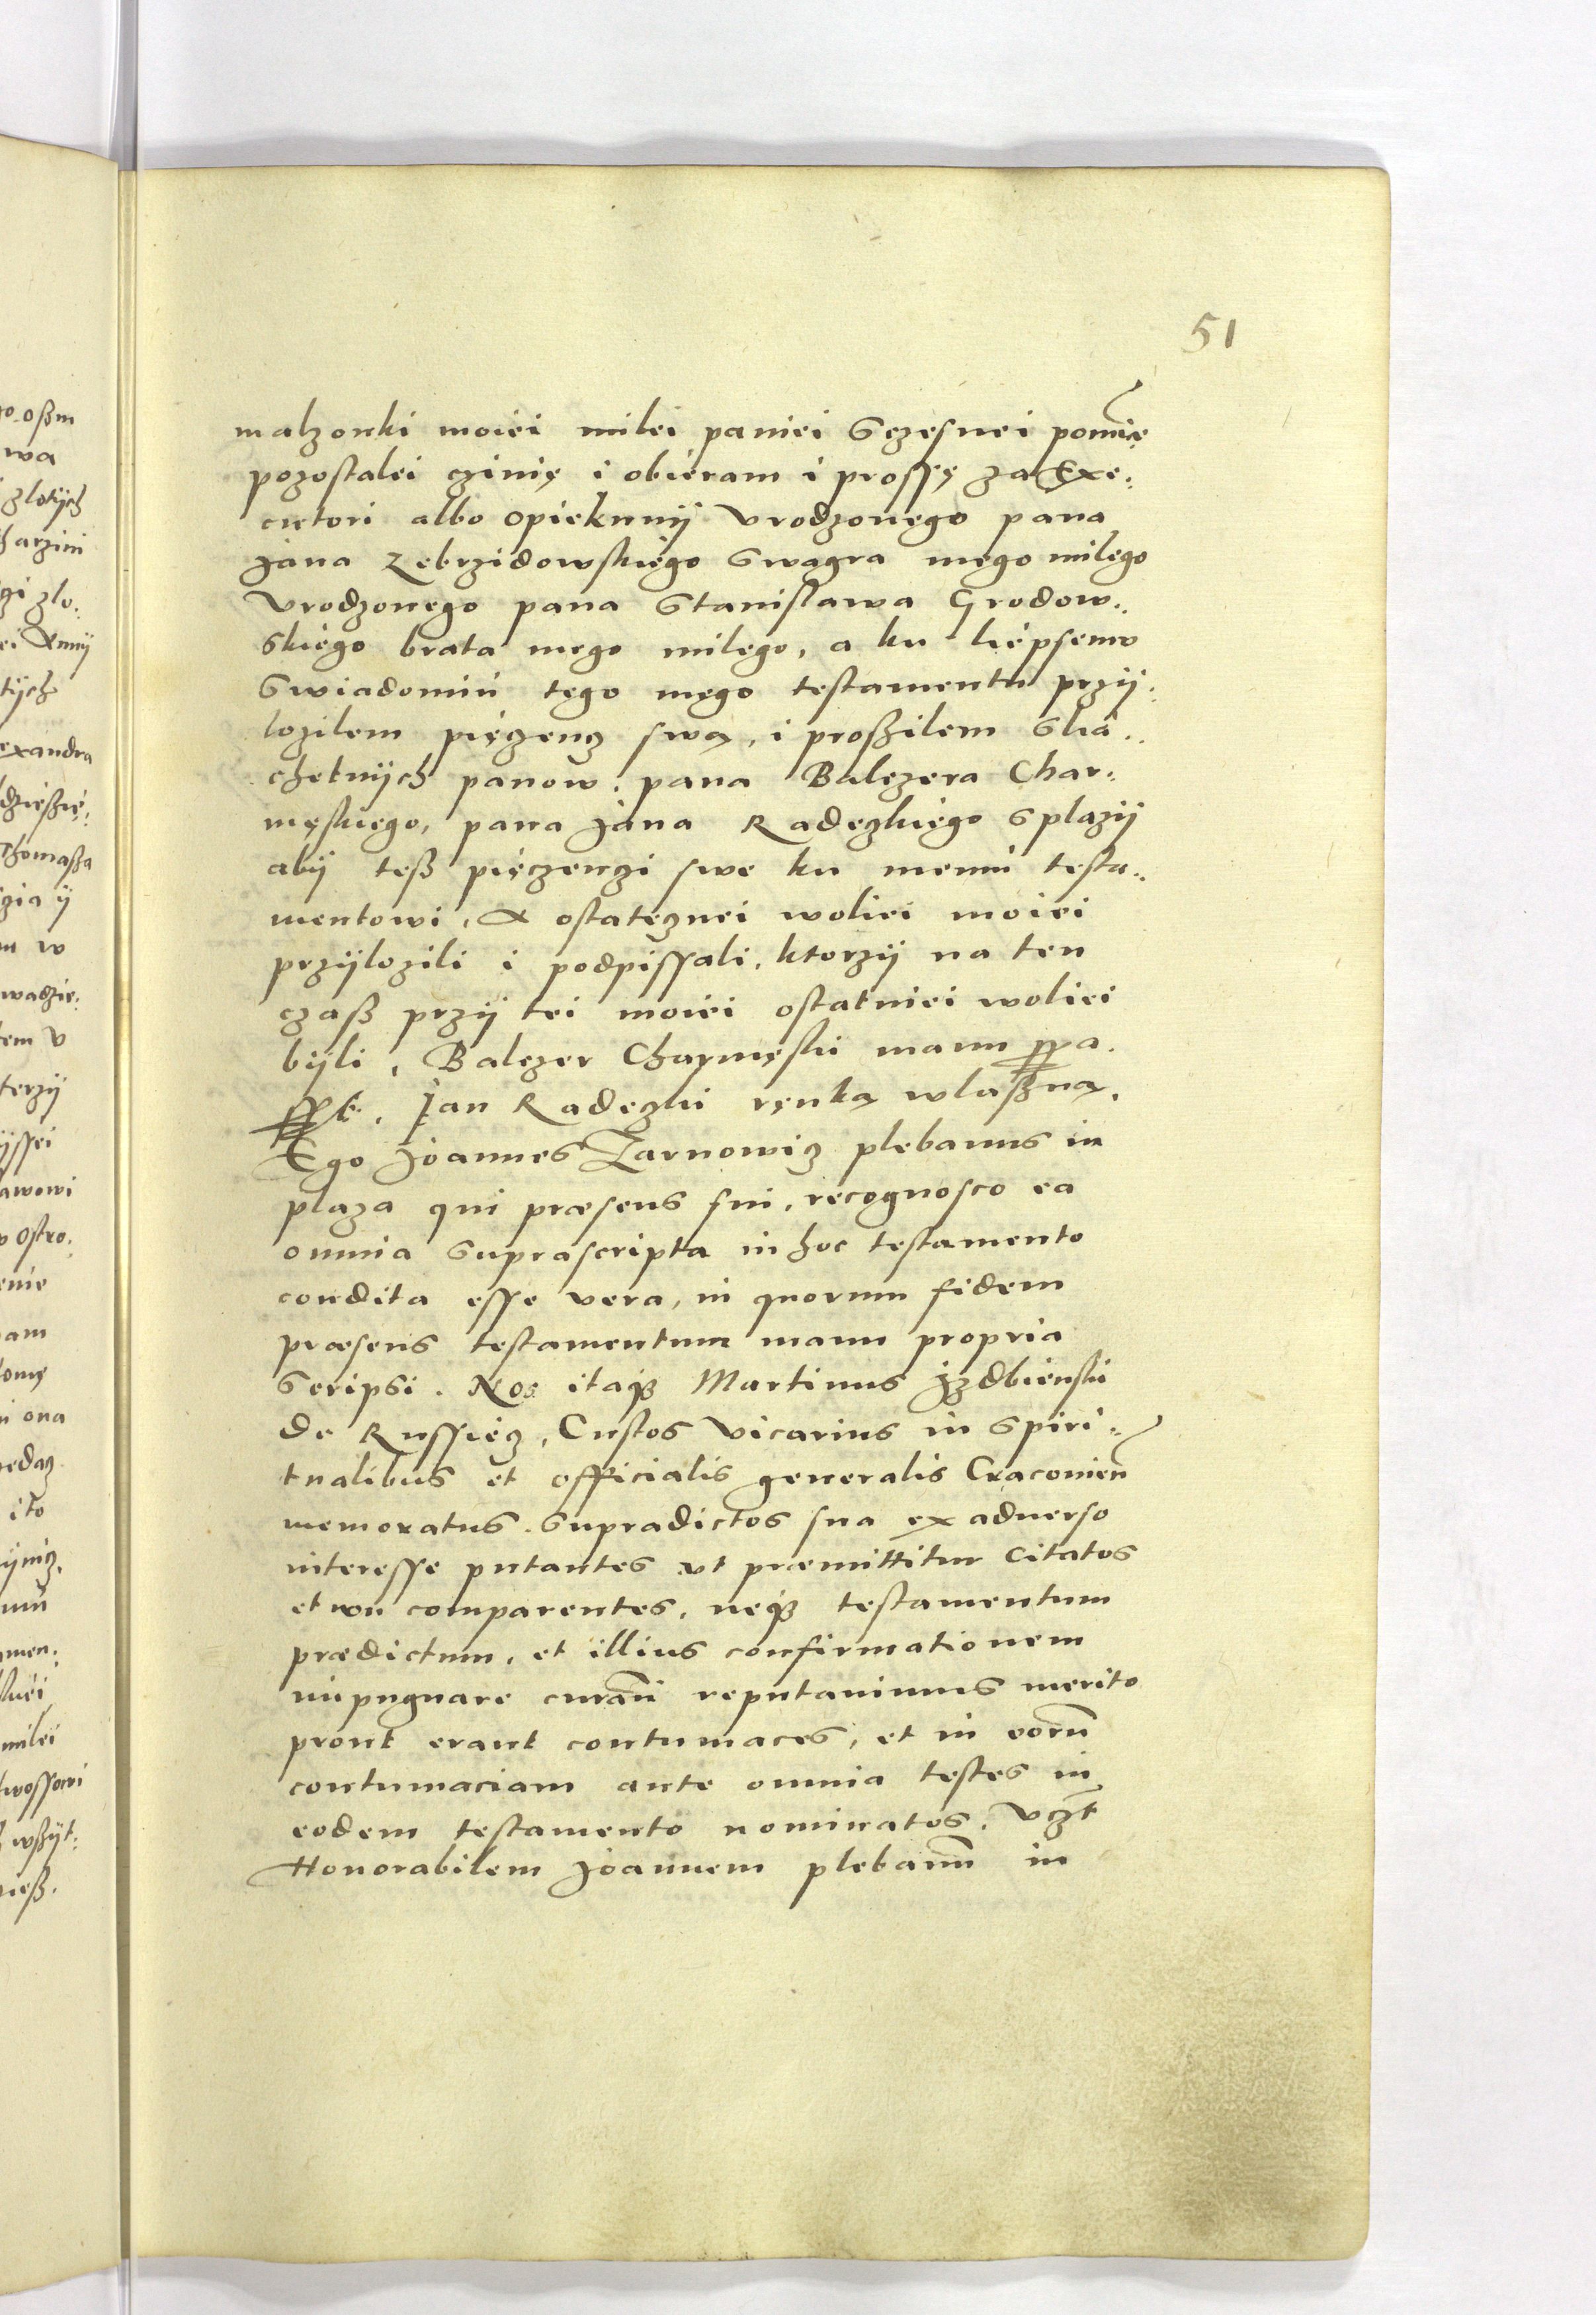 51
malzonki moiei milei paniei Sczesnei pomnie
pozostalei czinię i obieram i prossę za Exe:
cutori albo opiekunÿ Vrodzonego pana
Jana Zebrzidowskiego Swagra mego milego
Vrodzonego pana Stanislawa Grodow:
skiego brata mego milego, a ku liepsemu
Swiadomiu tego mego testamentu przÿ:
lozilem pięczenz swą, i proszilem Slia:
chetnÿch panow: pana Balczera Char:
męskiego, pana Jana Radeczkiego s plazÿ
abÿ tesz pięczenzi swe ku memu testa:
mentowi, A ostatecznei woliei moiei
przÿlozili i podpissali, ktorzÿ na ten
czasz przÿ tei moiei ostatniei woliei
bÿli, Balczer Charmęski manu ppa.
sst. Jan Radeczki ręnką wlaszną.
Ego Joannes Zarnowicz plebanus in
plaza qui præsens fui, recognosco ea
omnia suprascripta in hoc testamento
condita esse vera, in quorum fidem
præsens testamentum manu propria
scripsi. Nos itaqȝ Martinus Jzdbienski
de Russiecz, Custos Vicarius in Spiri:
tualibus et officialis generalis Cracovien̄
memoratus. supradictos sua ex adverso
interesse putantes ut præmittitur Citatos
et non comparentes, neqȝ testamentum
prædictum, et illius confirmationem
impugnare curan̄ reputavimus merito
prout erant contumaces, et in eorū
contumaciam ante omnia testes in
eodem testamento nominatos, Vczt
Honorabilem Joannem plebanū in
go oszm
wa
zlotÿch
harzini
gi zlo:
ei Annÿ
tÿch
exandra
dzieszię:
Thomasza
gia ÿ
m w
wadzie:
tem v
terzÿ
ÿssei
awowi
v ostro:
enie
am
tomę
i ona
ito
ÿnicz,
men:
milei
wossowi
wszÿt:
niesz.